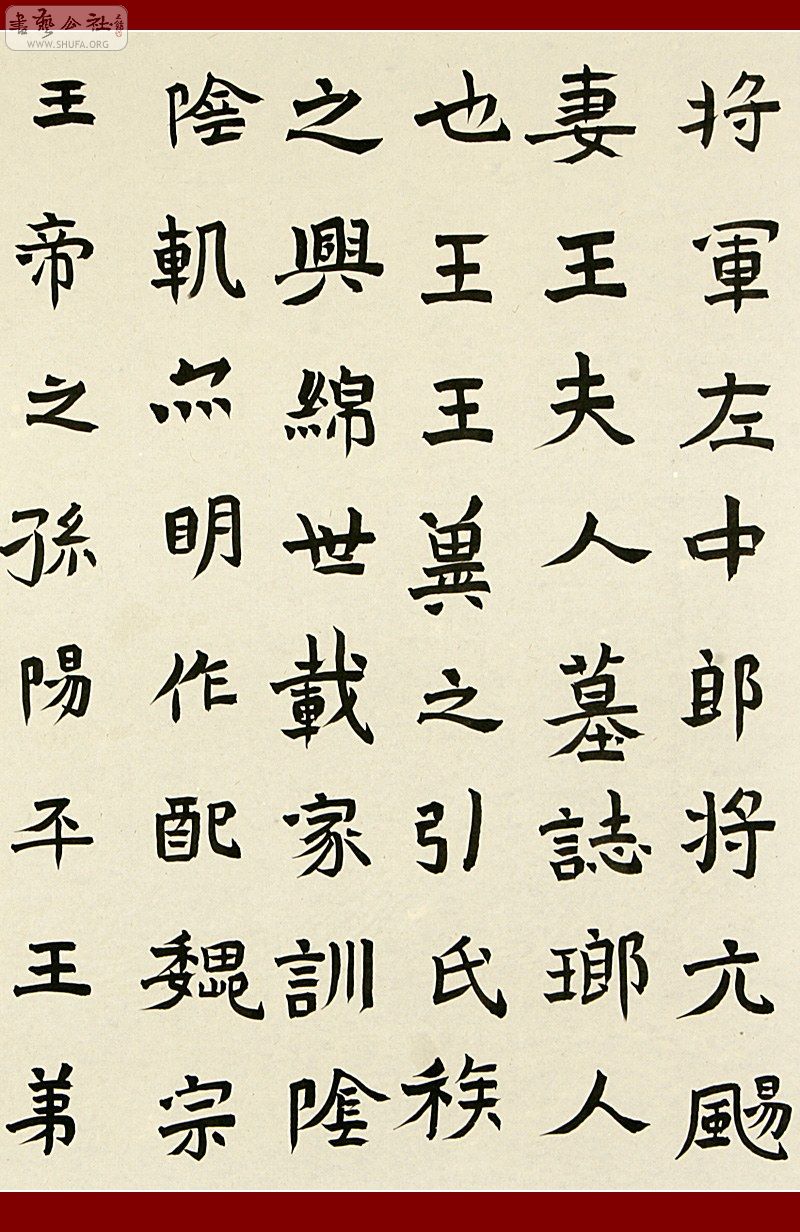 書藝公社
WWW.SHUFA.ORG
将軍左中郎将元颺
妻王夫人墓誌瑯人
也王王之引氏族
之興綿世載家訓陰
陰軌明作配魏宗
王帝之孫陽平王弟